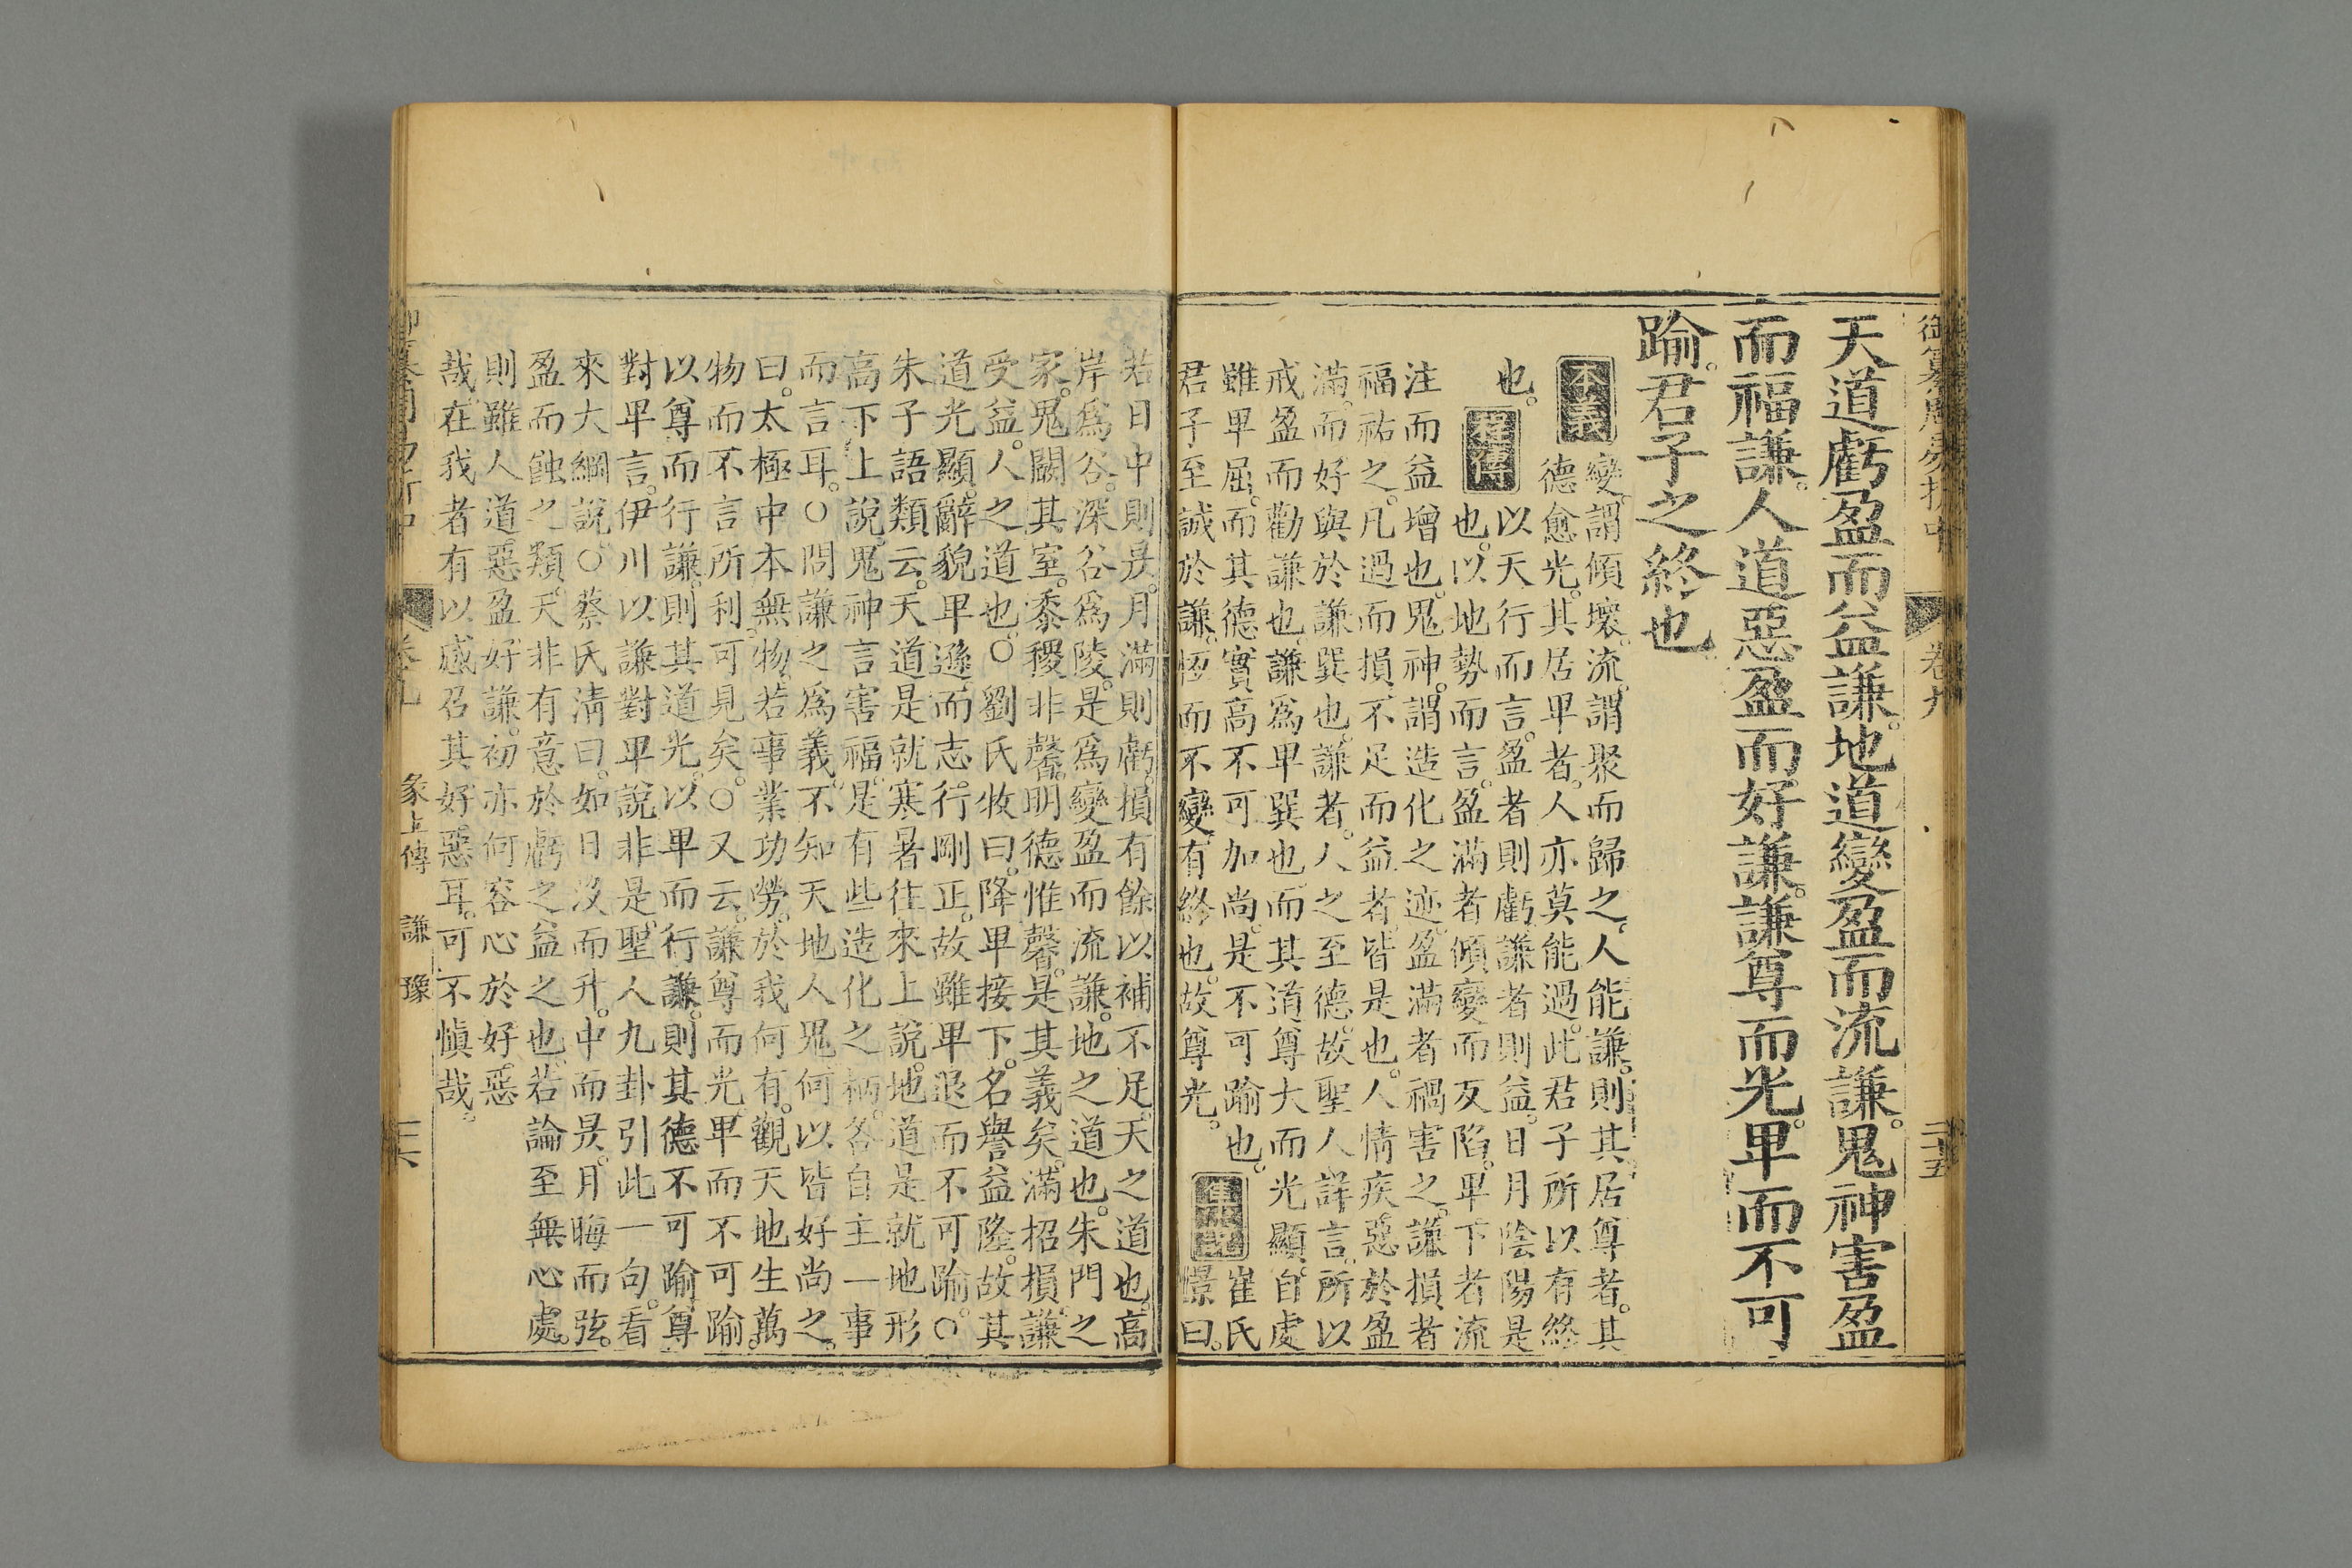 御纂周易折中 卷九 二十五
天道虧盈而益謙。地道變盈而流謙。鬼神害盈
而福謙。人道惡盈而好謙。謙尊而光。卑而不可
踰。君子之終也。
本義 變。謂傾壞。流。謂聚而歸之。人能謙。則其居尊者。其
德愈光。其居卑者。人亦莫能過。此君子所以有終
也。 程傳 以天行而言。盈者則虧。謙者則益。日月陰陽是
也。以地勢而言。盈滿者傾變而反陷。卑下者流
注而益增也。鬼神。謂造化之迹。盈滿者禍害之。謙損者
福祐之。凡過而損。不足而益者。皆是也。人情疾惡於盈
滿。而好與於謙巽也。謙者。人之至德。故聖人詳言。所以
戒盈而勸謙也。謙爲卑巽也。而其道尊大而光顯。自處
雖卑屈。而其德實高不可加尚。是不可踰也。 集說 崔氏
君子至誠於謙。恆而不變。有終也。故尊光。 憬曰。
若日中則昃。月滿則虧。損有餘以補不足。天之道也。高
岸爲谷。深谷爲陵。是爲變盈而流謙。地之道也。朱門之
家。鬼闞其室。黍稷非馨。明德惟馨。是其義矣。滿招損。謙
受益。人之道也。○劉氏牧曰。降卑接下。名譽益隆。故其
道光顯。辭貌卑遜。而志行剛正。故雖卑退而不可踰。○
朱子語類云。天道是就寒暑往來上說。地道是就地形
高下上說。鬼神言害福。是有些造化之柄。各自主一事
而言耳。○問謙之爲義。不知天地人鬼。何以皆好尚之。
曰。太極中本無物。若事業功勞。於我何有。觀天地生萬
物。而不言所利。可見矣。○又云。謙尊而光。卑而不可踰。
以尊而行謙。則其道光。以卑而行謙。則其德不可踰。尊
對卑言。伊川以謙對卑說非是。聖人九卦引此一句。看
來大綱說。○蔡氏清曰。如日沒而升。中而昃。月晦而弦。
盈而蝕之類。天非有意於虧之益之也。若論至無心處。
則雖人道惡盈好謙。初亦何容心於好惡
哉。在我者有以感召其好惡耳。可不慎哉。
御纂周易折中 卷九 彖上傳 謙 豫 二十六